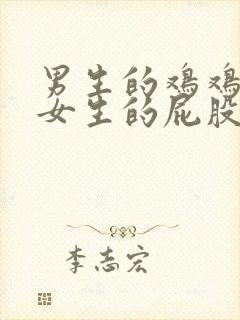 男生的鸡鸡
女生的屁股
李志宏